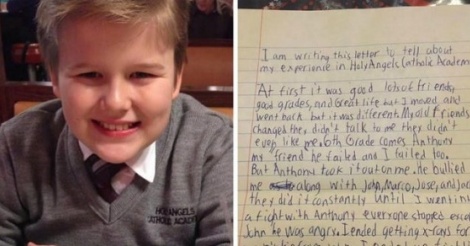 HOLY ANGELS
CATHOLIC ACADEMY
I am writing this letter to tell about
my experience in Holy Angels Catholic Academ
At first it was good lots of friends,
good grades, and great life but I moved and
went back but it was different. My old friends
changed they didn't talk to me they didn't
even like me. 6th Grade comes Anthony
my friend he failed and I failed too.
But Anthony took it out on me. he bullied
me along with John, Marco, Jose, and Jo
they did it constantly Until I went in
a fight with Anthony everyone stopped exc
John he was angry. I ended getting x-rays for